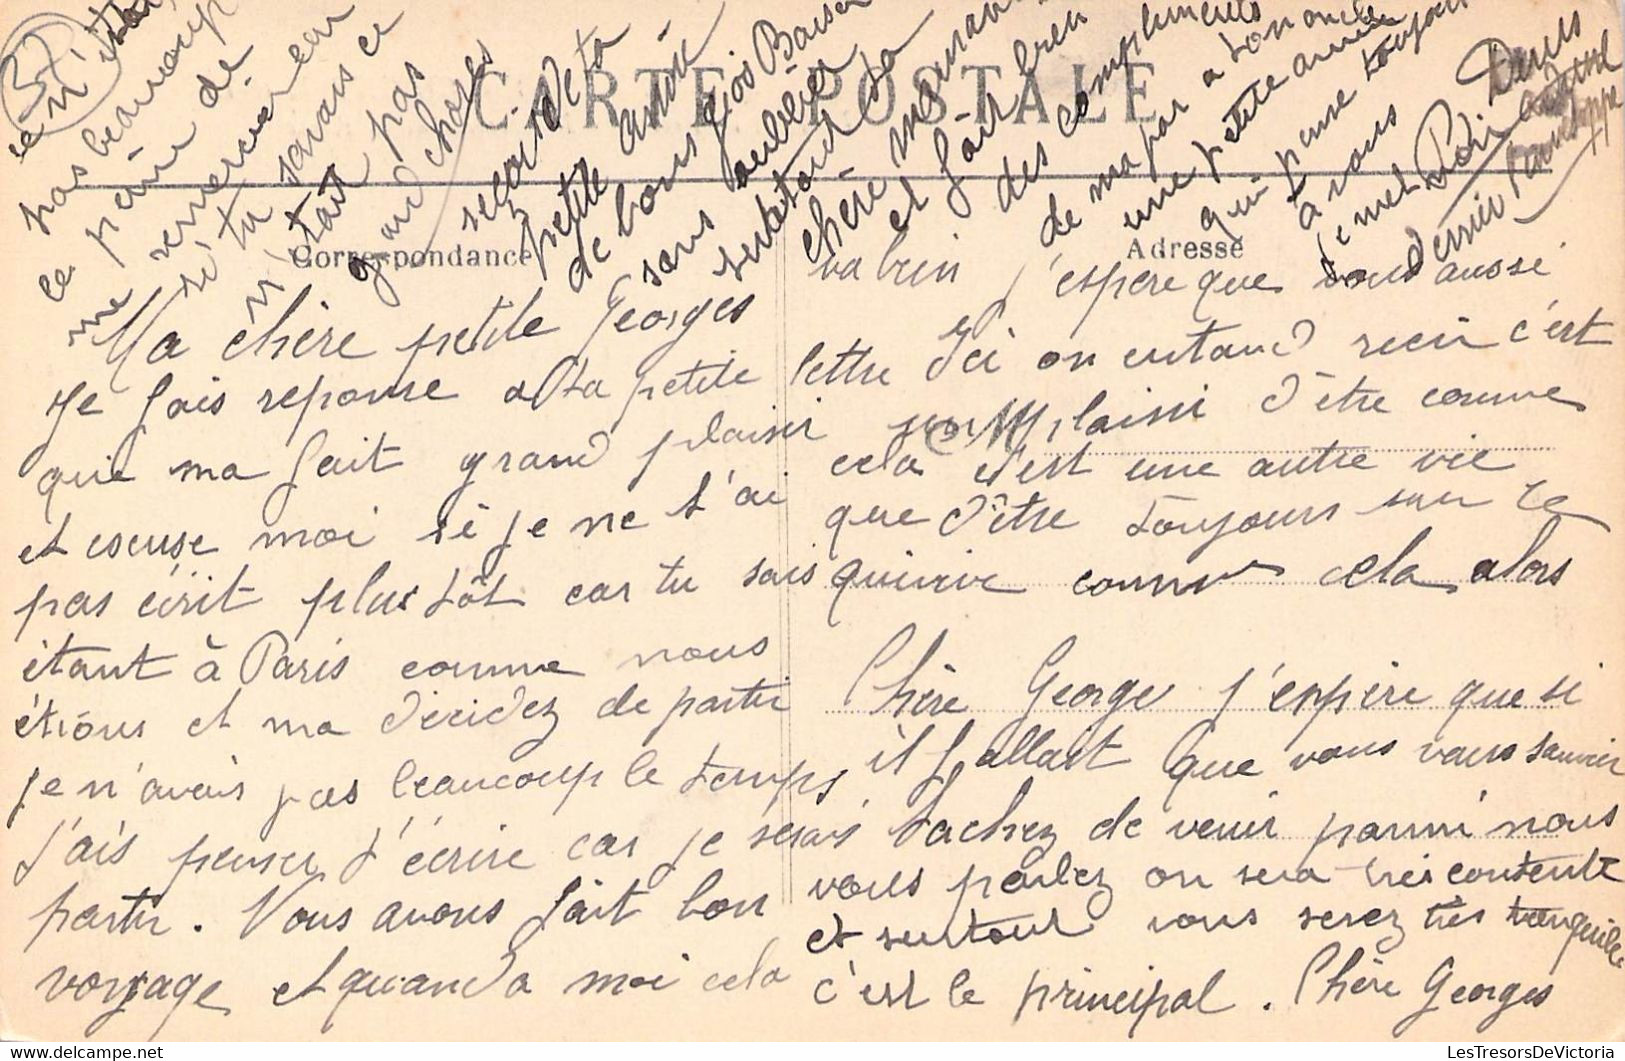 CARTE POSTALE
Correspondance
Adresse
Ma chère petite Georges
je fais reponse a ta petite lettre
qui ma fait grand plaisir
et escuse moi si je ne t'ai
pas écrit plus tôt car tu sais
étant à Paris comme nous
étions et ma décidez de partir
je n'avais pas beaucoup le temps
j'ais penser t'écrire car je serais
partir. Vous avons fait bon
voyage et quand a moi cela
va bien j'espère que vous aussi
Ici on entand rien c'est
un plaisir d'être comme
cela c'est une autre vie
que d'être toujours sur le
quivive comme cela alors
Chère George j'espère que si
il fallait que vous vous sauver
tachez de venir parmi nous
vous parlez on sera très contente
et surtout vous serez très tranquile
c'est le principal. Chère Georges
ce n'était
pas beaucoup
la peine de
me remercier car
si tu savais ce
n'était pas
grand choses
reçois de ta
petite amie
de bons gros Baiser
sans oublier
surtout ta
chère maman
et fait bien
des compliments
de ma par a ton oncle
une petite amie
qui pense toujours
a vous
Denis